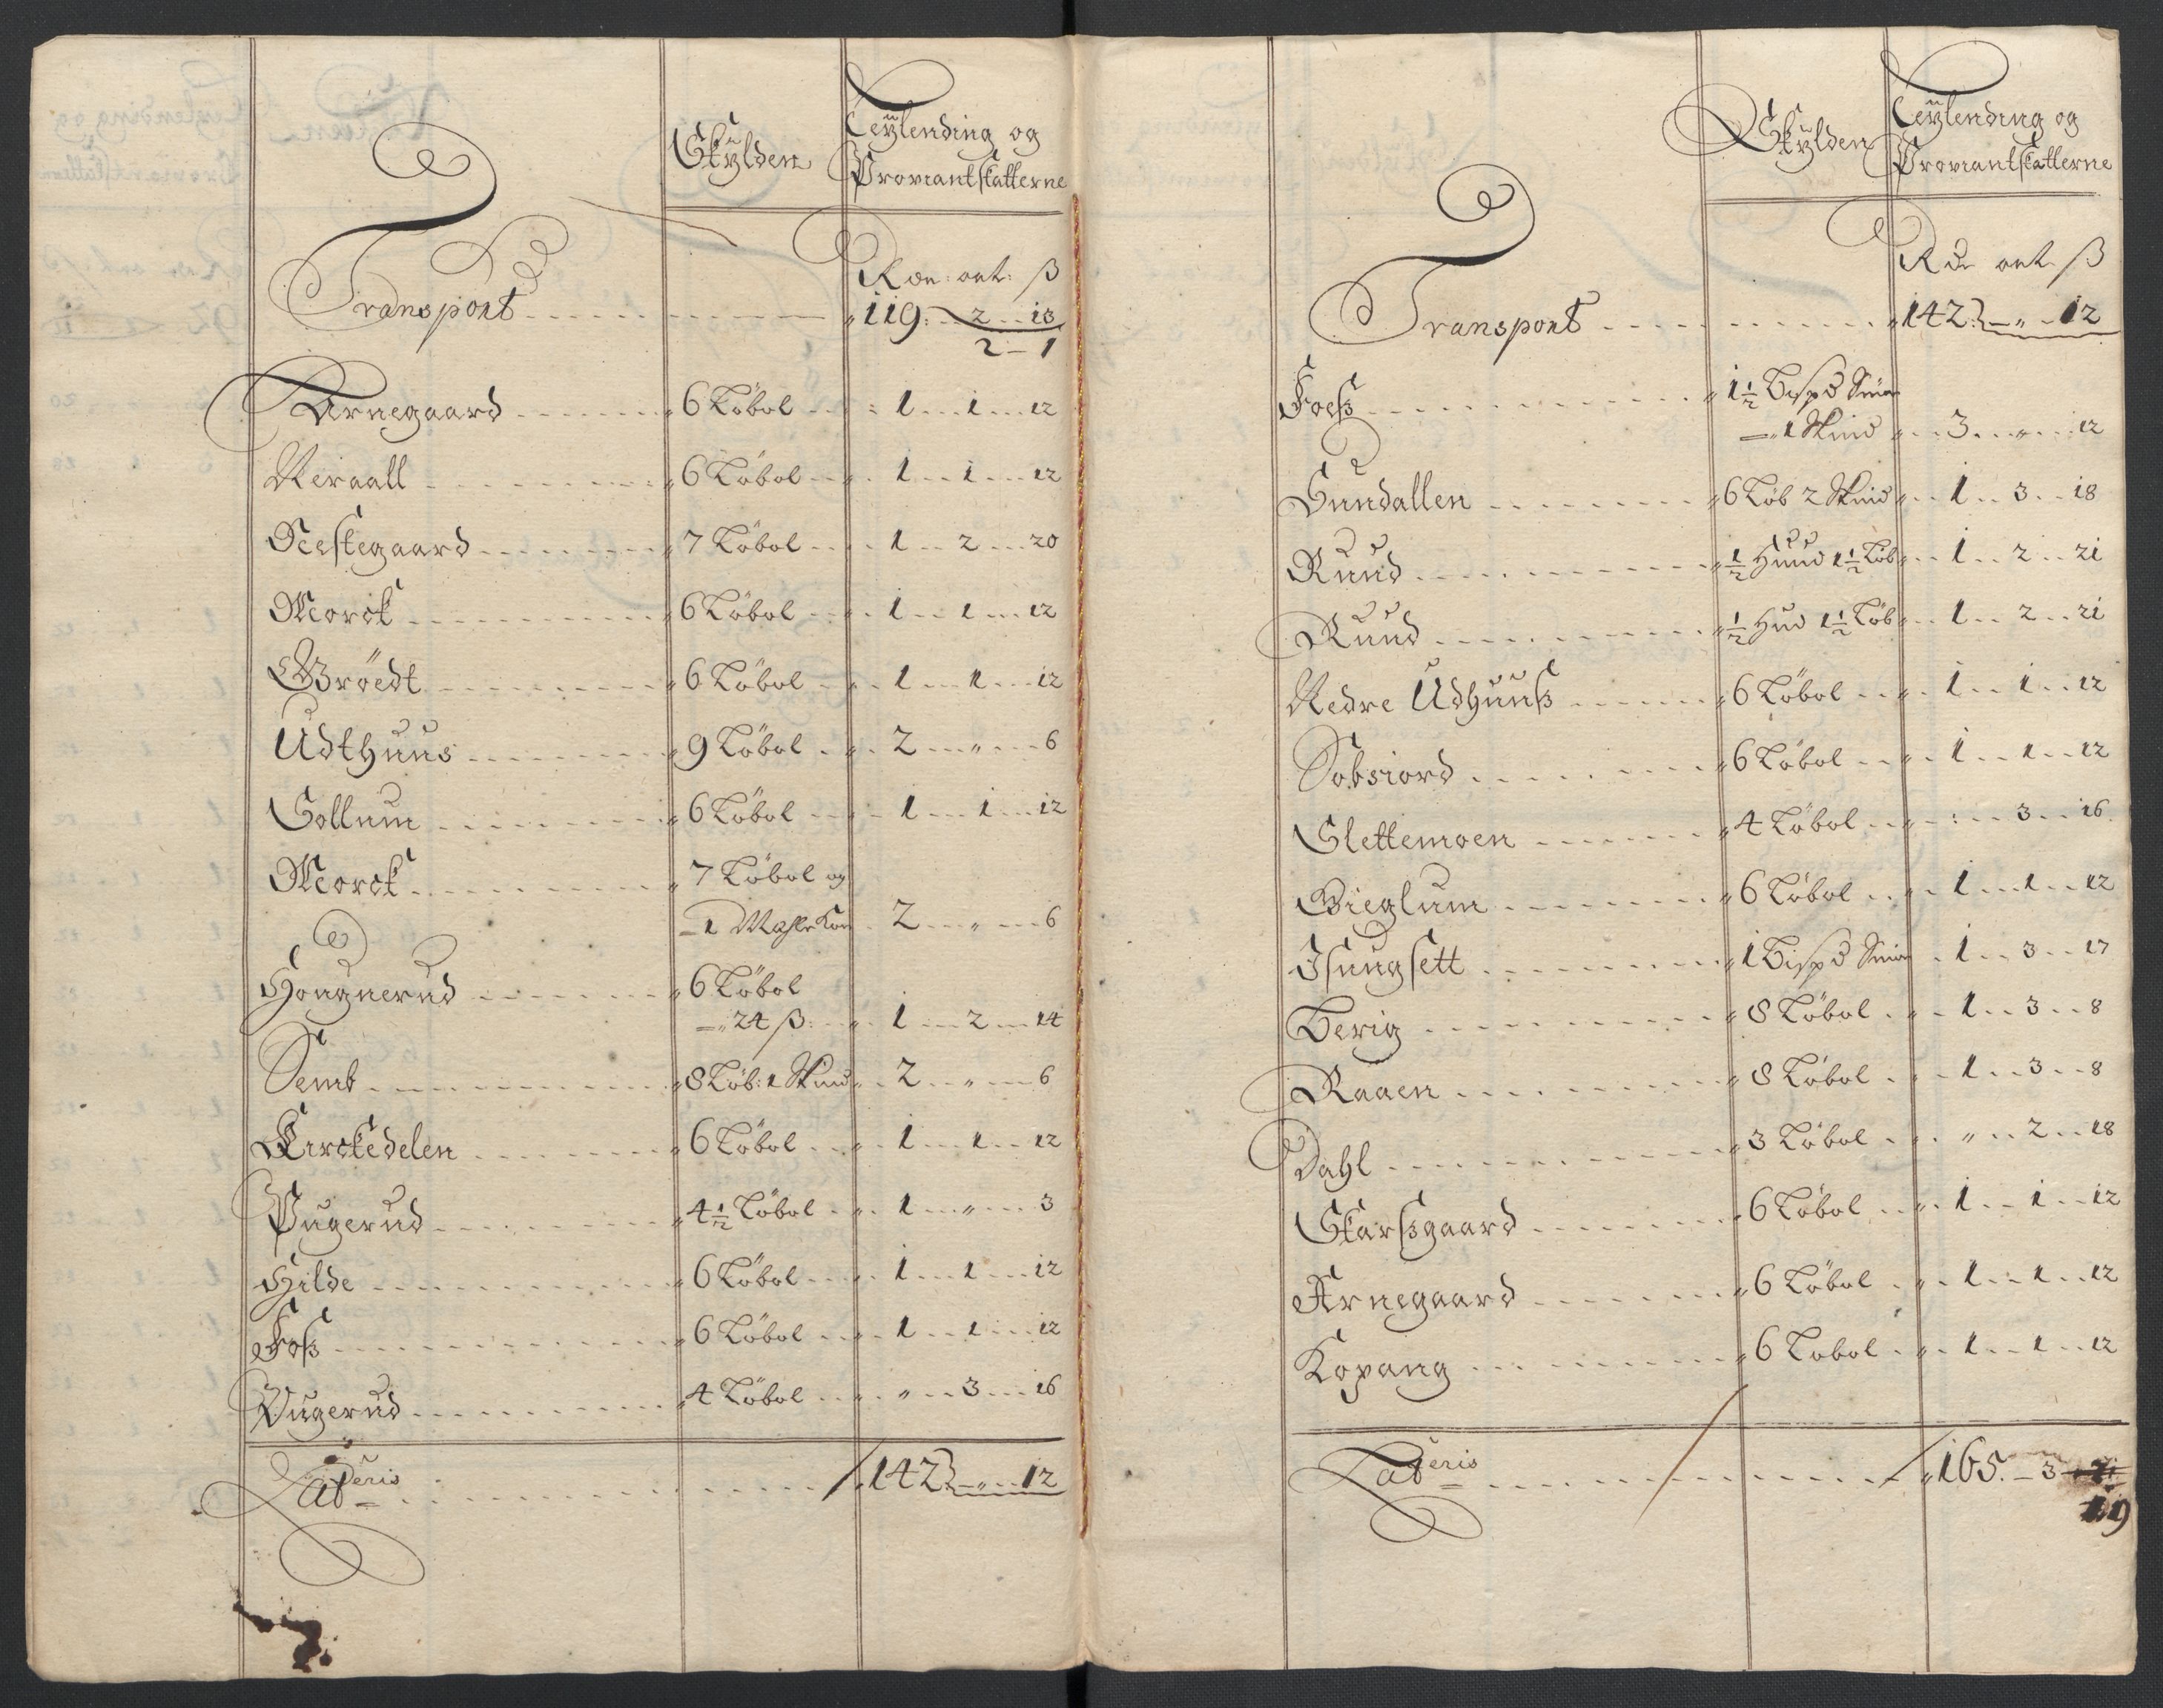 Skylden
Leylending og
Proviantskatterne
Transport
Rdr: ort: ß
119: 2 18
2 - 1
Arnegaard 6 Løbol 1 1 12
Neraall 6 Løbol 1 1 12
Nestegaard 7 Løbol 1 2 20
Morck 6 Løbol 1 1 12
Brøedt 6 Løbol 1 1 12
Udthuus 9 Løbol 2 " 6
Gollum 6 Løbol 1 1 12
Morck 7 Løbol og
1 Mahle Kor 2 " 6
Hougnerud 6 Løbol
24 ß: 1 2 14
Semb 8 Løb: 1 Skind 2 " 6
Kirckedelen 6 Løbol 1 1 12
Pugerud 4½ Løbol 1 " 3
Hilde 6 Løbol 1 1 12
Foss 6 Løbol 1 1 12
Pugerud 4 Løbol " 3 16
Lateris 142 " 12
Skylden
Leylending og
Proviantskatterne
Rdr ort ß
Transport 142 " 12
Foess 1½ Bispd Smør
1 Skind 3 " 12
Sundallen 6 Løb 2 Skind 1 3 18
Ruud ½ Huud 1½ Løb 1 2 21
Ruud ½ Hud 1½ Løb 1 2 21
Nedre Udhuuss 6 Løbol 1 1 12
Sobsiord 6 Løbol 1 1 12
Slettemoen 4 Løbol : 3 16
Bieglum 6 Løbol 1 1 12
Isungsett 1 Bispd Smør 1 3 17
Berig 8 Løbol 1 3 8
Raaen 8 Løbol 1 3 8
Dahl 3 Løbol " 2 18
Skarssgaard 6 Løbol 1 1 12
Arnegaard 6 Løbol 1 1 12
Kopang 6 Løbol 1 1 12
Lateris 165 - 3
19